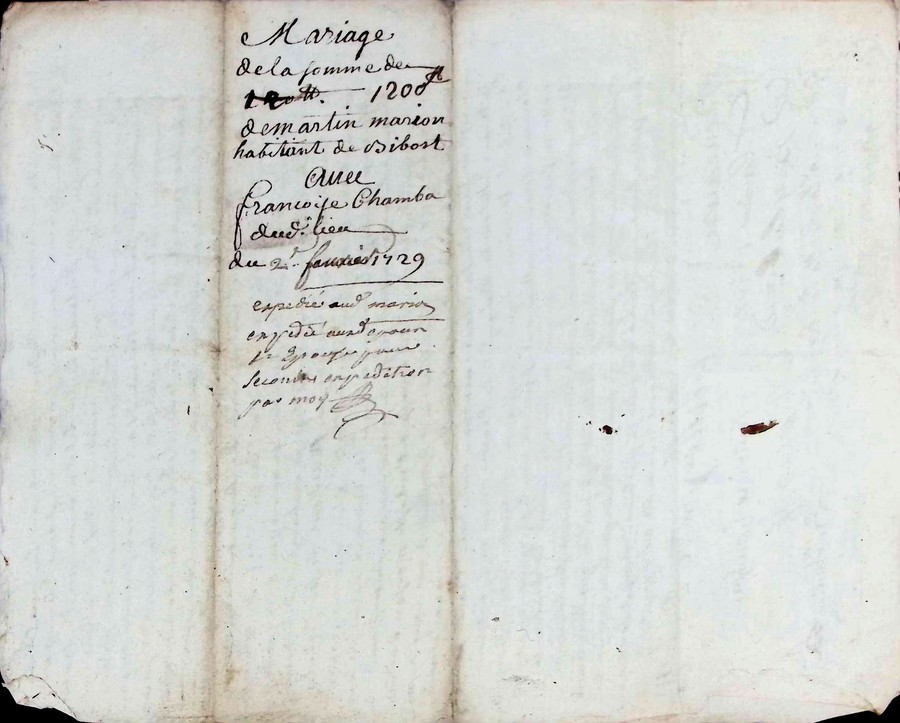 Mariage
de la somme de
1200 ₶
de martin marion
habitant de Bibost
avec
francoise Chamba
dud. lieu
du 2e. fevrier 1729
expedié aud marion
expedié

seconde expedition
par moy